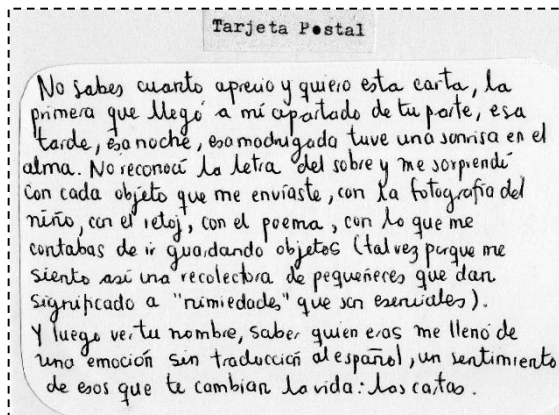 Tarjeta Postal
No sabes cuanto aprecio y quiero esta carta, la
primera que llegó a mi apartado de tu parte, esa
tarde, esa noche, esa madrugada tuve una sonrisa en el
alma. No reconocí la letra del sobre y me sorprendí
con cada objeto que me enviaste, con la fotografía del
niño, con el reloj, con el poema, con lo que me
contabas de ir guardando objetos (tal vez porque me
siento así una recolectora de pequeñeces que dan
significado a "nimiedades" que son esenciales).
Y luego ver tu nombre, saber quien eras me llenó de
una emoción sin traducción al español, un sentimiento
de esos que te cambian la vida: las cartas.